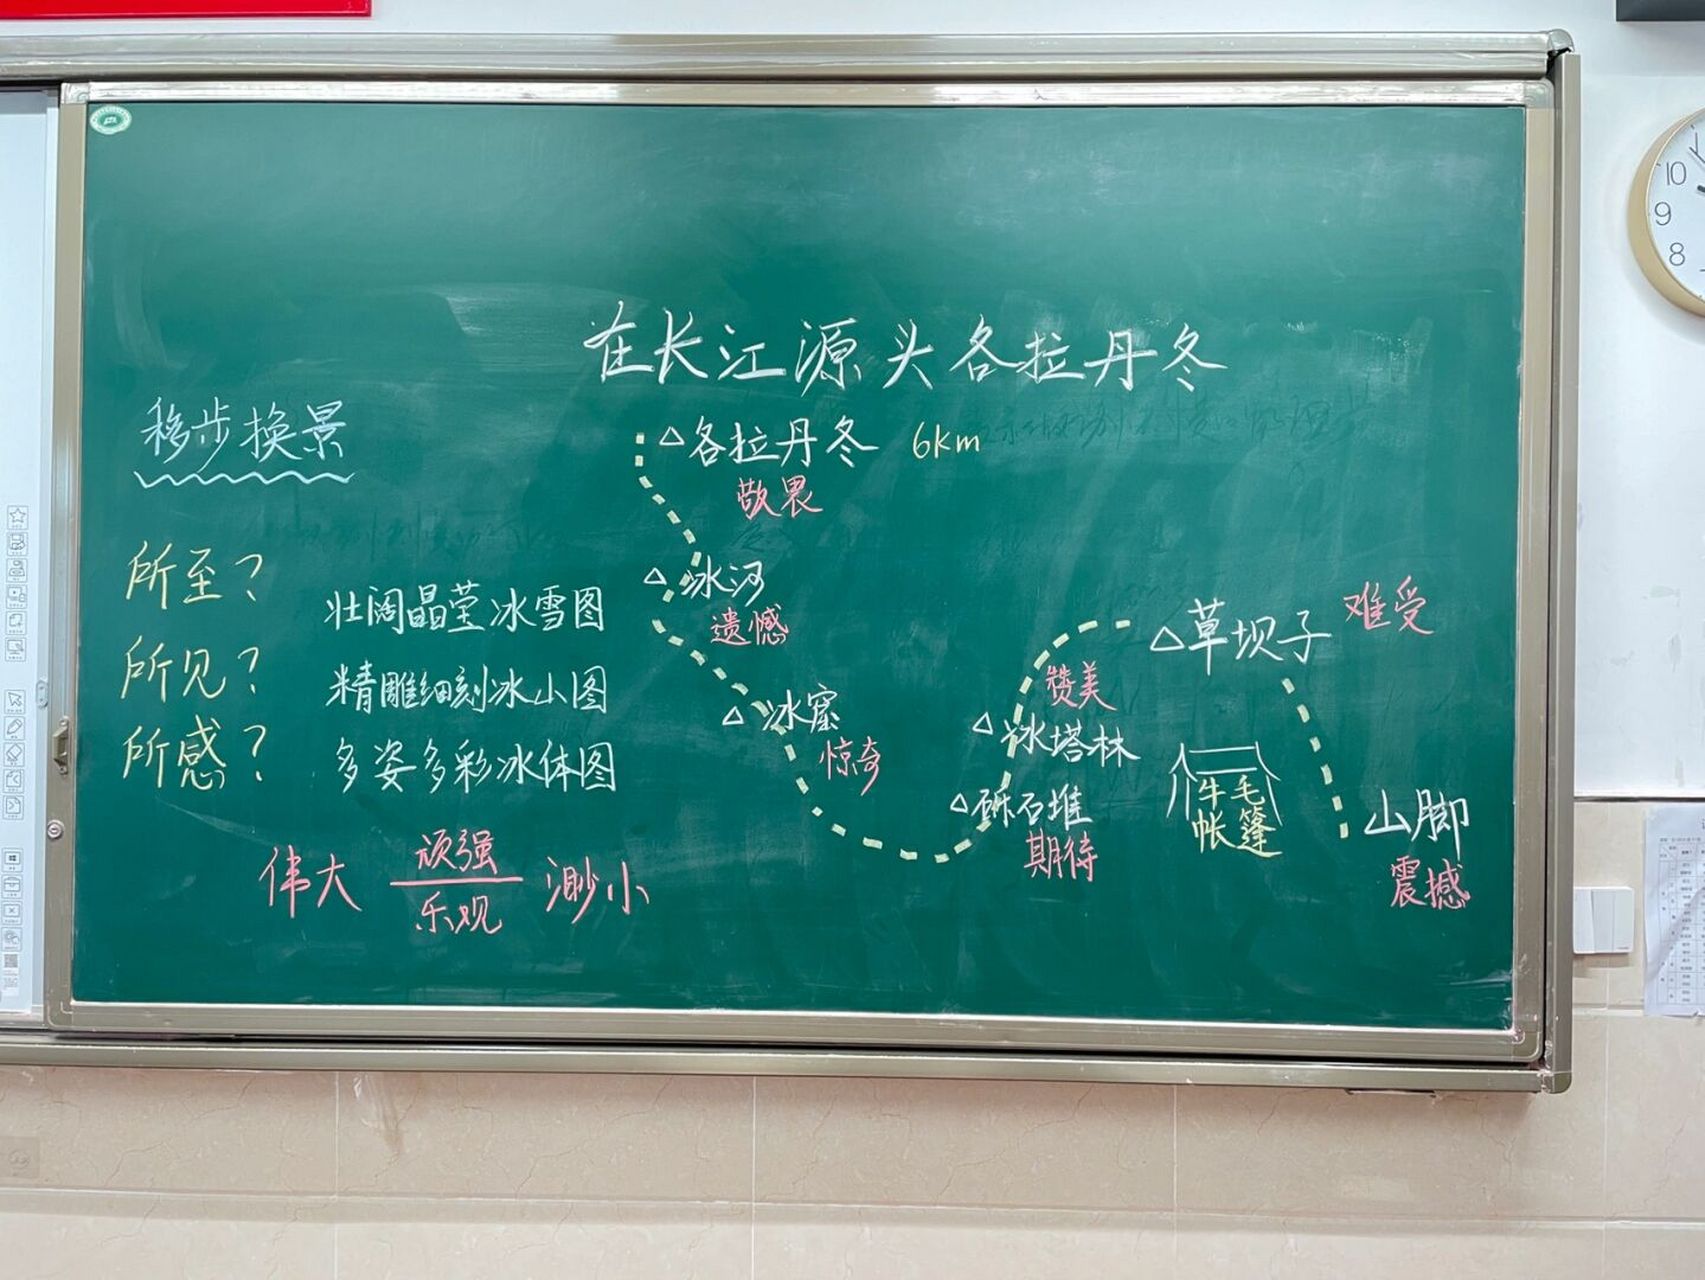 在长江源头各拉丹冬
移步换景
所至?
所见?
所感?
壮阔晶莹冰雪图
精雕细刻冰山图
多姿多彩冰体图
伟大 顽强 渺小
乐观
△各拉丹冬 6km
敬畏
△冰河
遗憾
△冰窟
惊奇
赞美
△冰塔林
△砾石堆
期待
△草坝子 难受
牛毛
帐篷
山脚
震撼
10
9
8